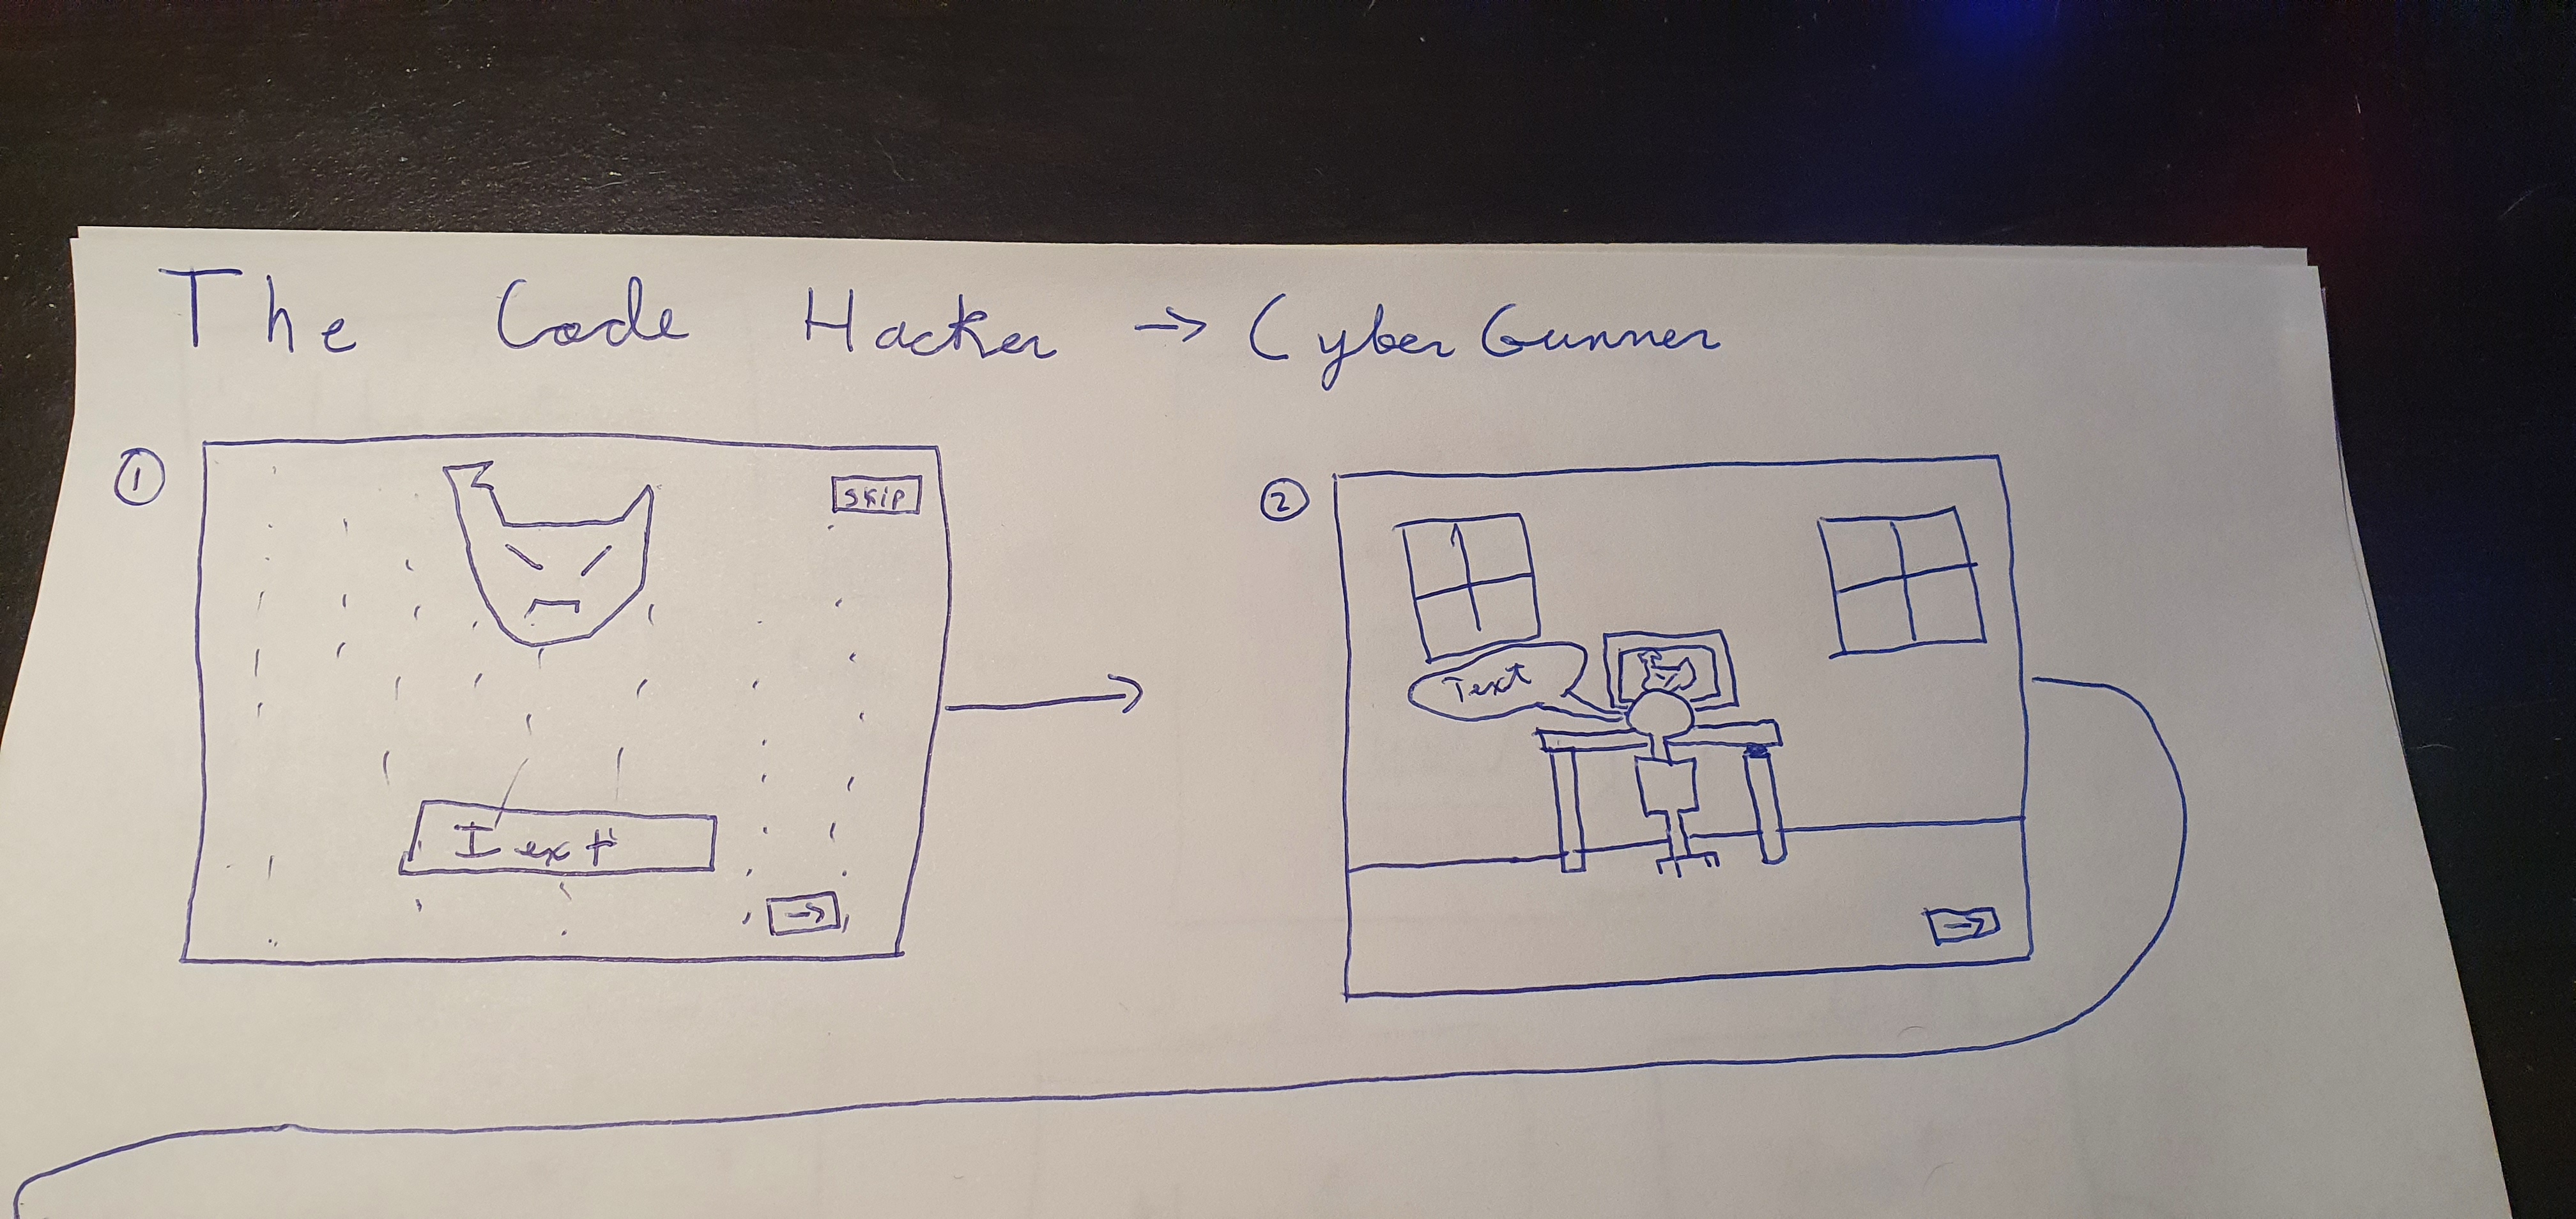 The Code Hacker → Cyber Gunner
1
skip
Text
→
2
Text
→